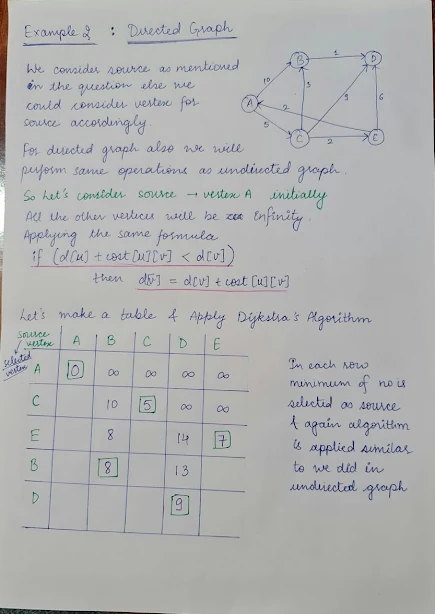 Example 2 : Directed Graph
We consider source as mentioned
in the question else we
could consider vertex for
source accordingly.
A B C D E
10 5 2 3 1 9 2 6
For directed graph also we will
perform same operations as undirected graph.
So let's consider source → vertex A initially
All the other vertices will be Infinity.
Applying the same formula
if (d[u] + cost[u][v] < d[v])
then d[v] = d[u] + cost[u][v]
Let's make a table & Apply Dijkstra's Algorithm
Source vertex A B C D E
selected vertex
A 0 ∞ ∞ ∞ ∞
C 10 5 ∞ ∞
E 8 14 7
B 8 13
D 9
In each row
minimum of no is
selected as source
& again algorithm
is applied similar
to we did in
undirected graph